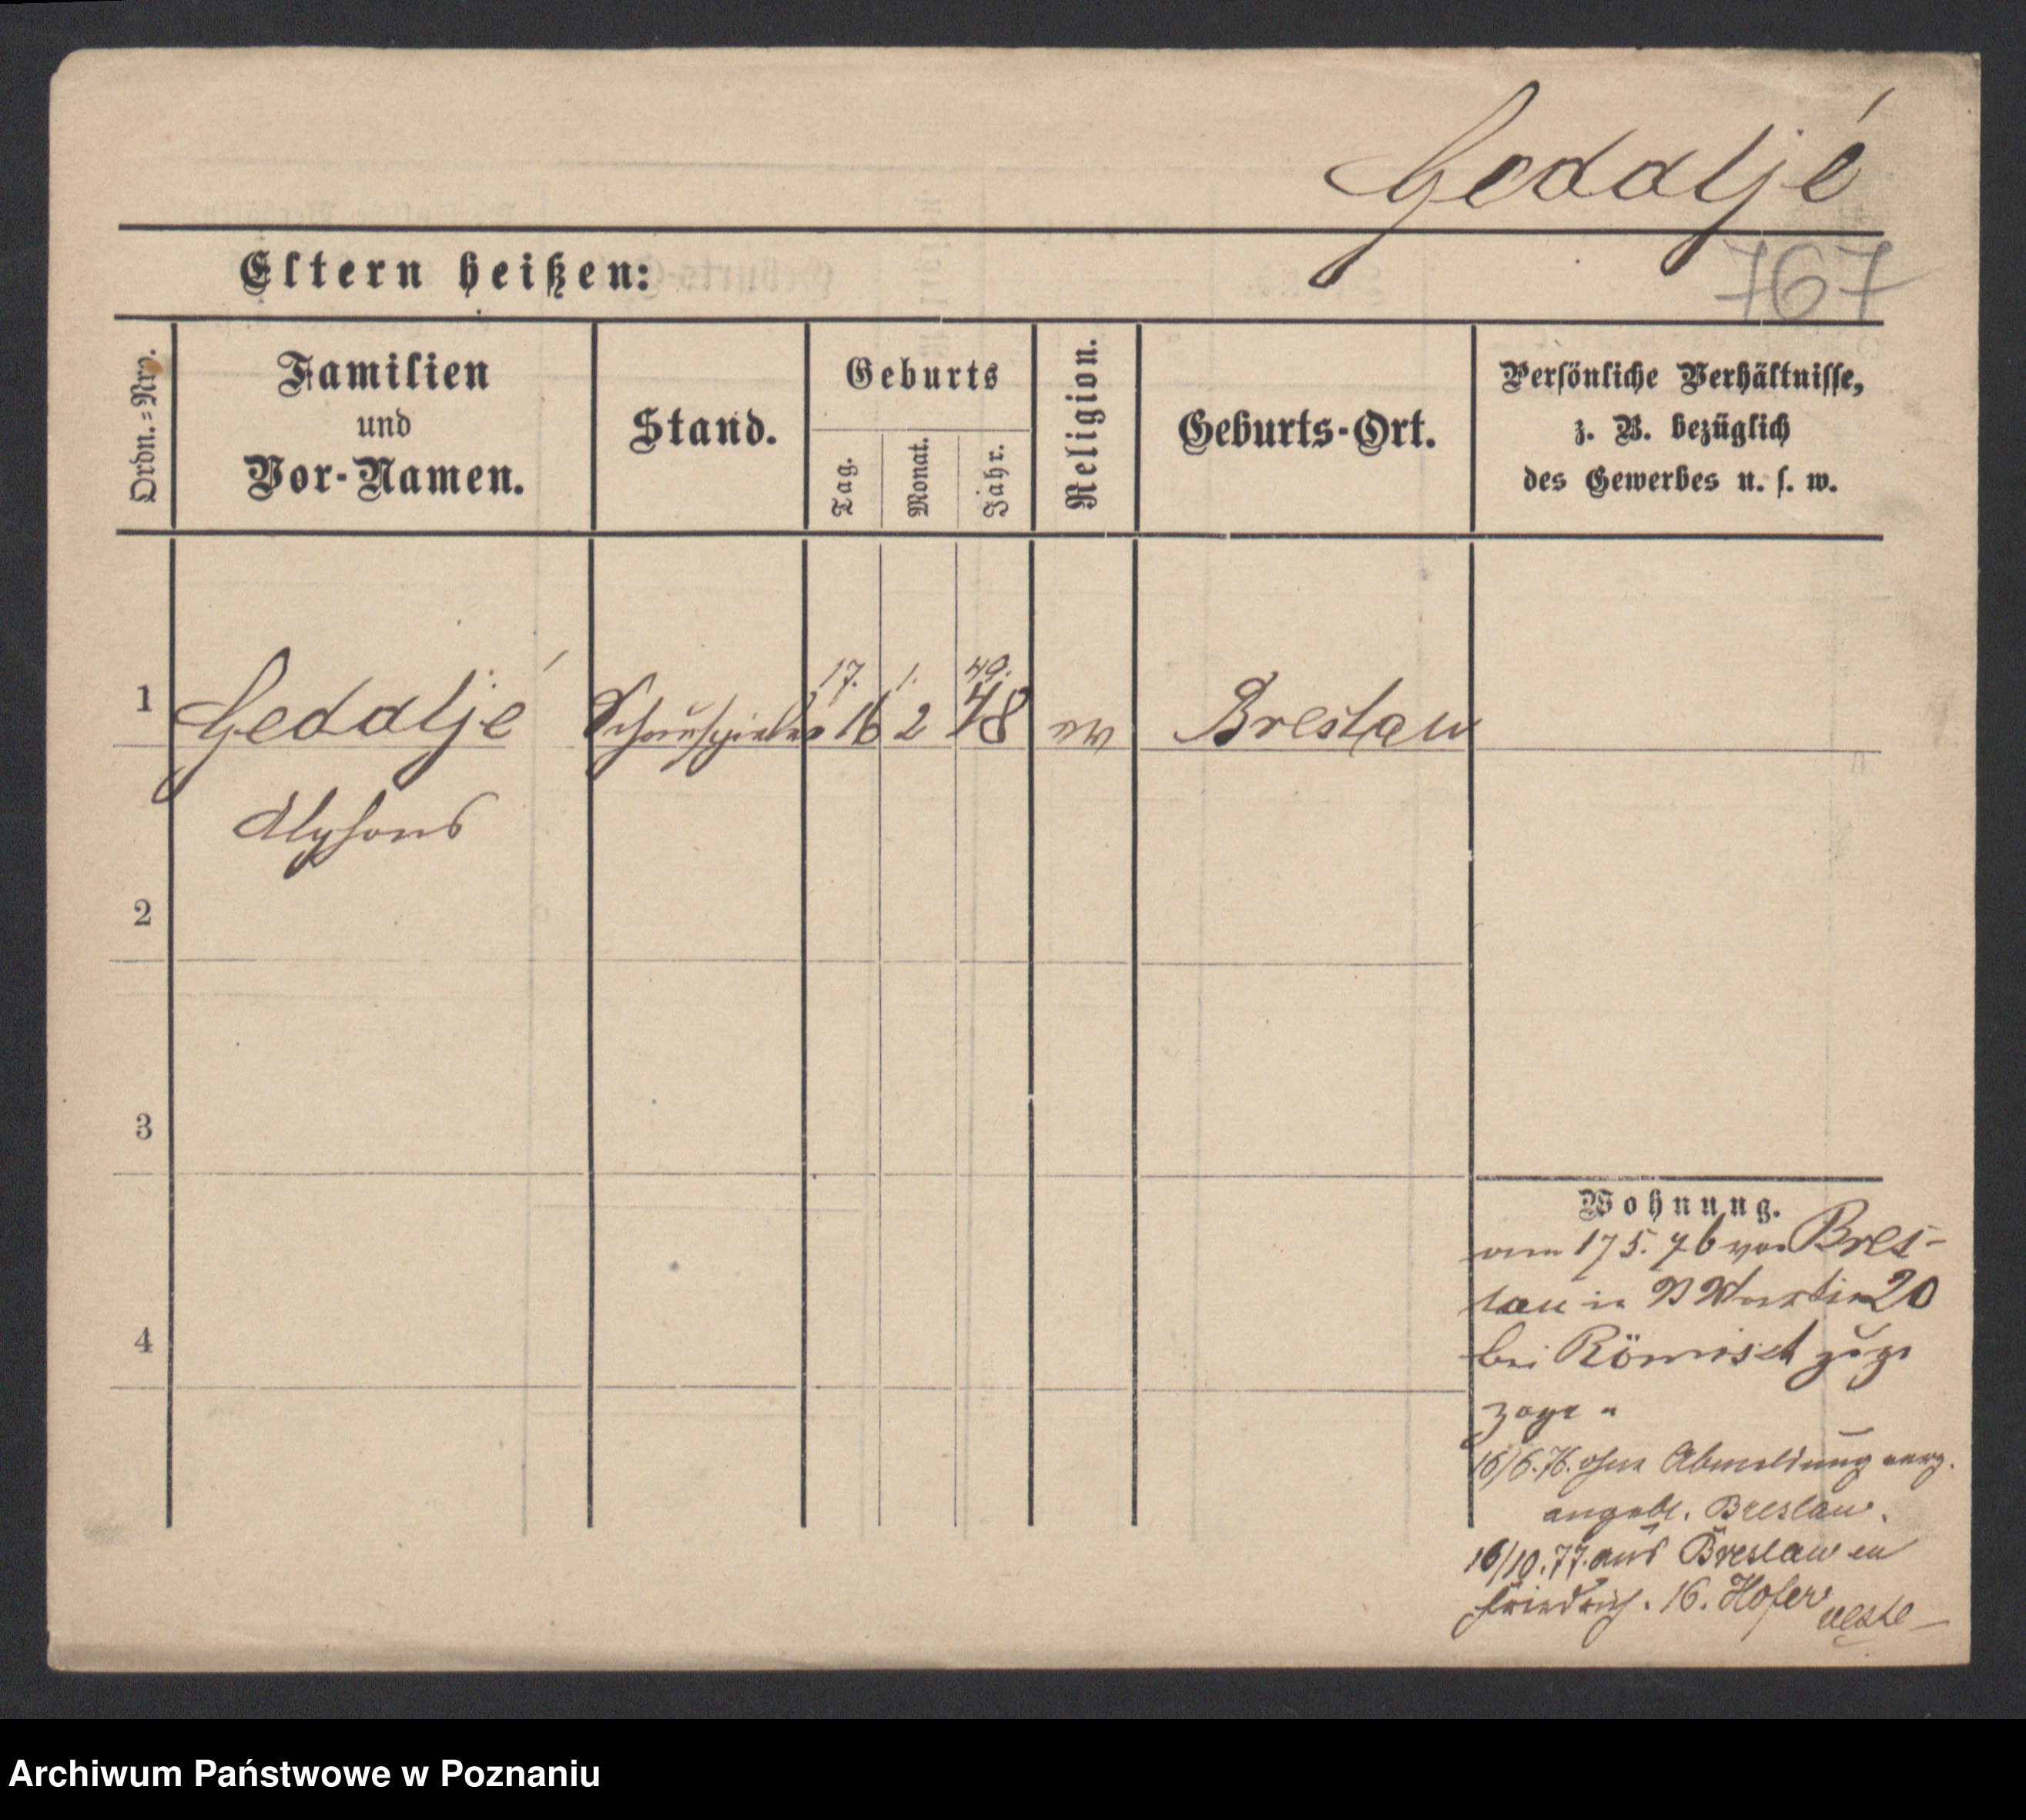 Gedaljé
767
Eltern heißen:
Ordn.=Nro.
Familien
und
Vor-Namen.
Stand.
Geburts
Tag.
Monat.
Jahr.
Religion.
Geburts-Ort.
Persönliche Verhältnisse,
z. B. bezüglich
des Gewerbes u. s. w.
17. 1. 49.
1 Gedaljé Schauspieler 16 2 48 ev Breslaw
Alphons
2
3
4
Wohnung.
am 17 5. 76 von Bres-
lau in Martin 20
bei Römisch zuge
zogen
16/6. 76. ohne Abmeldung verz.
angebl. Breslau.
16/10. 77. aus Breslau in
Friedrich. 16. Hofer
Archiwum Państwowe w Poznaniu